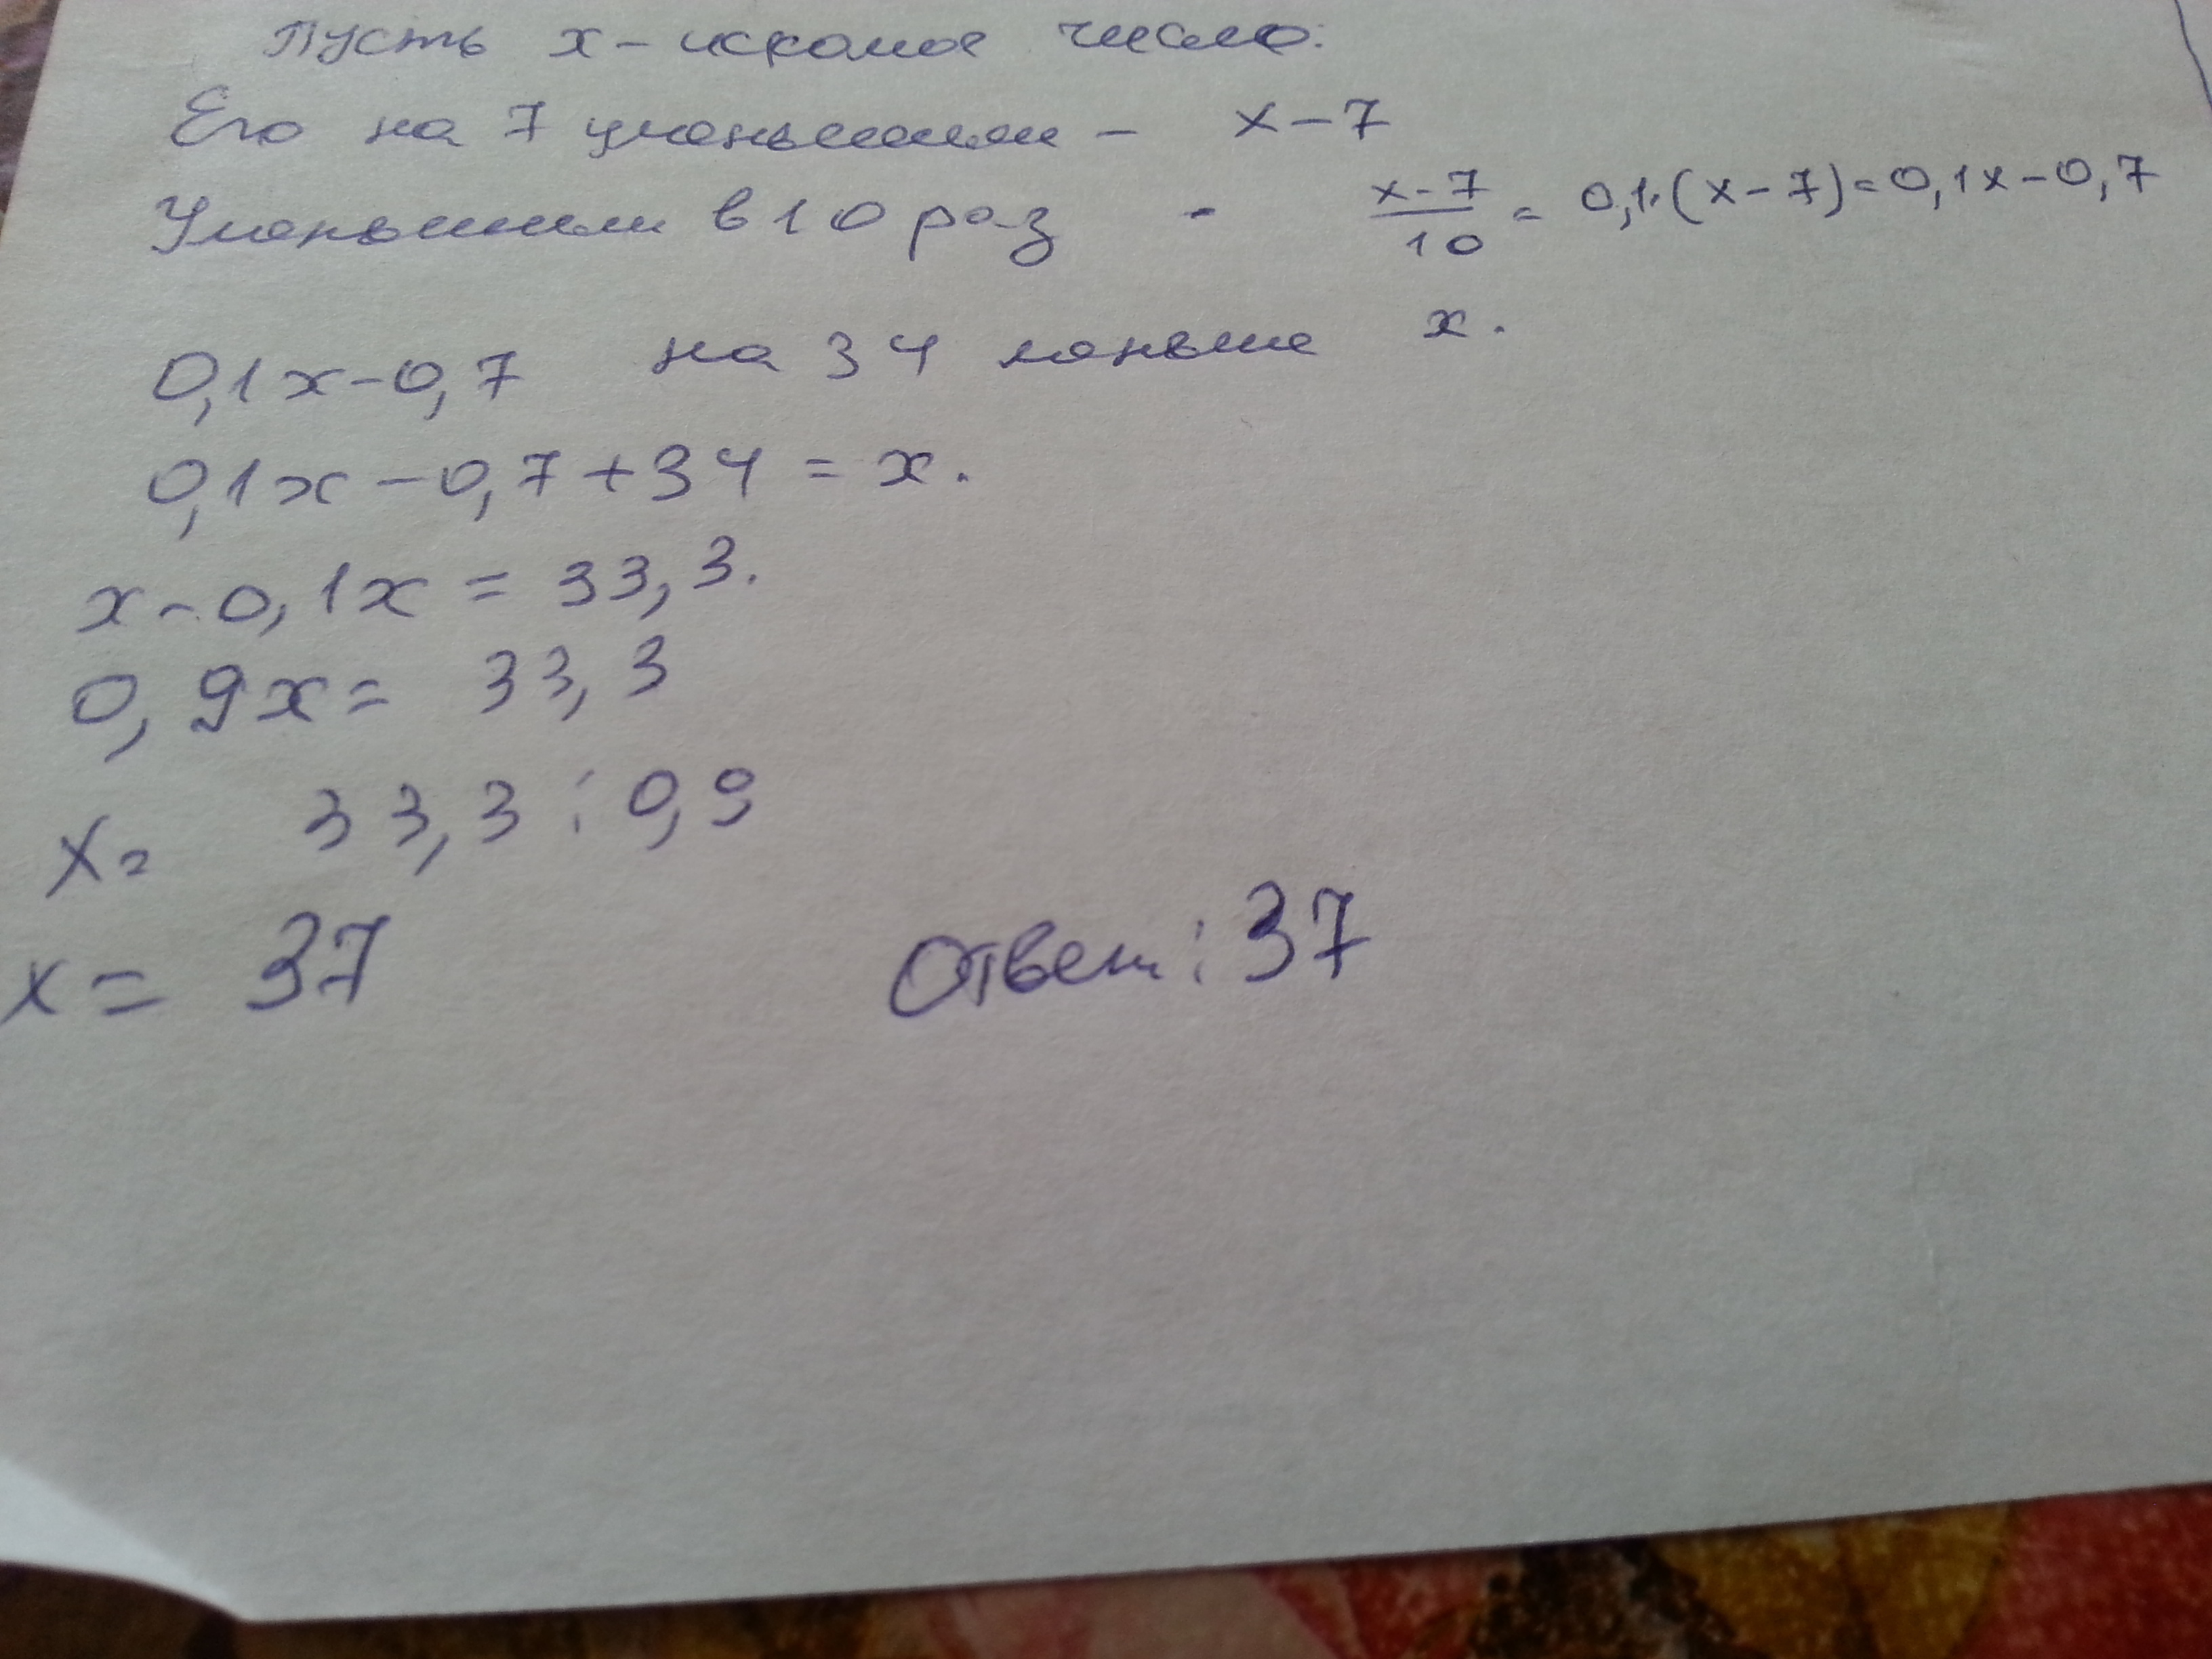 Пусть x – искомое число.
Его на 7 уменьшили – x – 7
Уменьшили в 10 раз - x-7/10 = 0,1·(x-7)=0,1x-0,7
0,1x-0,7 на 34 меньше x.
0,1x-0,7+34=x.
x-0,1x=33,3.
0,9x= 33,3
x= 33,3:0,9
x= 37 Ответ: 37